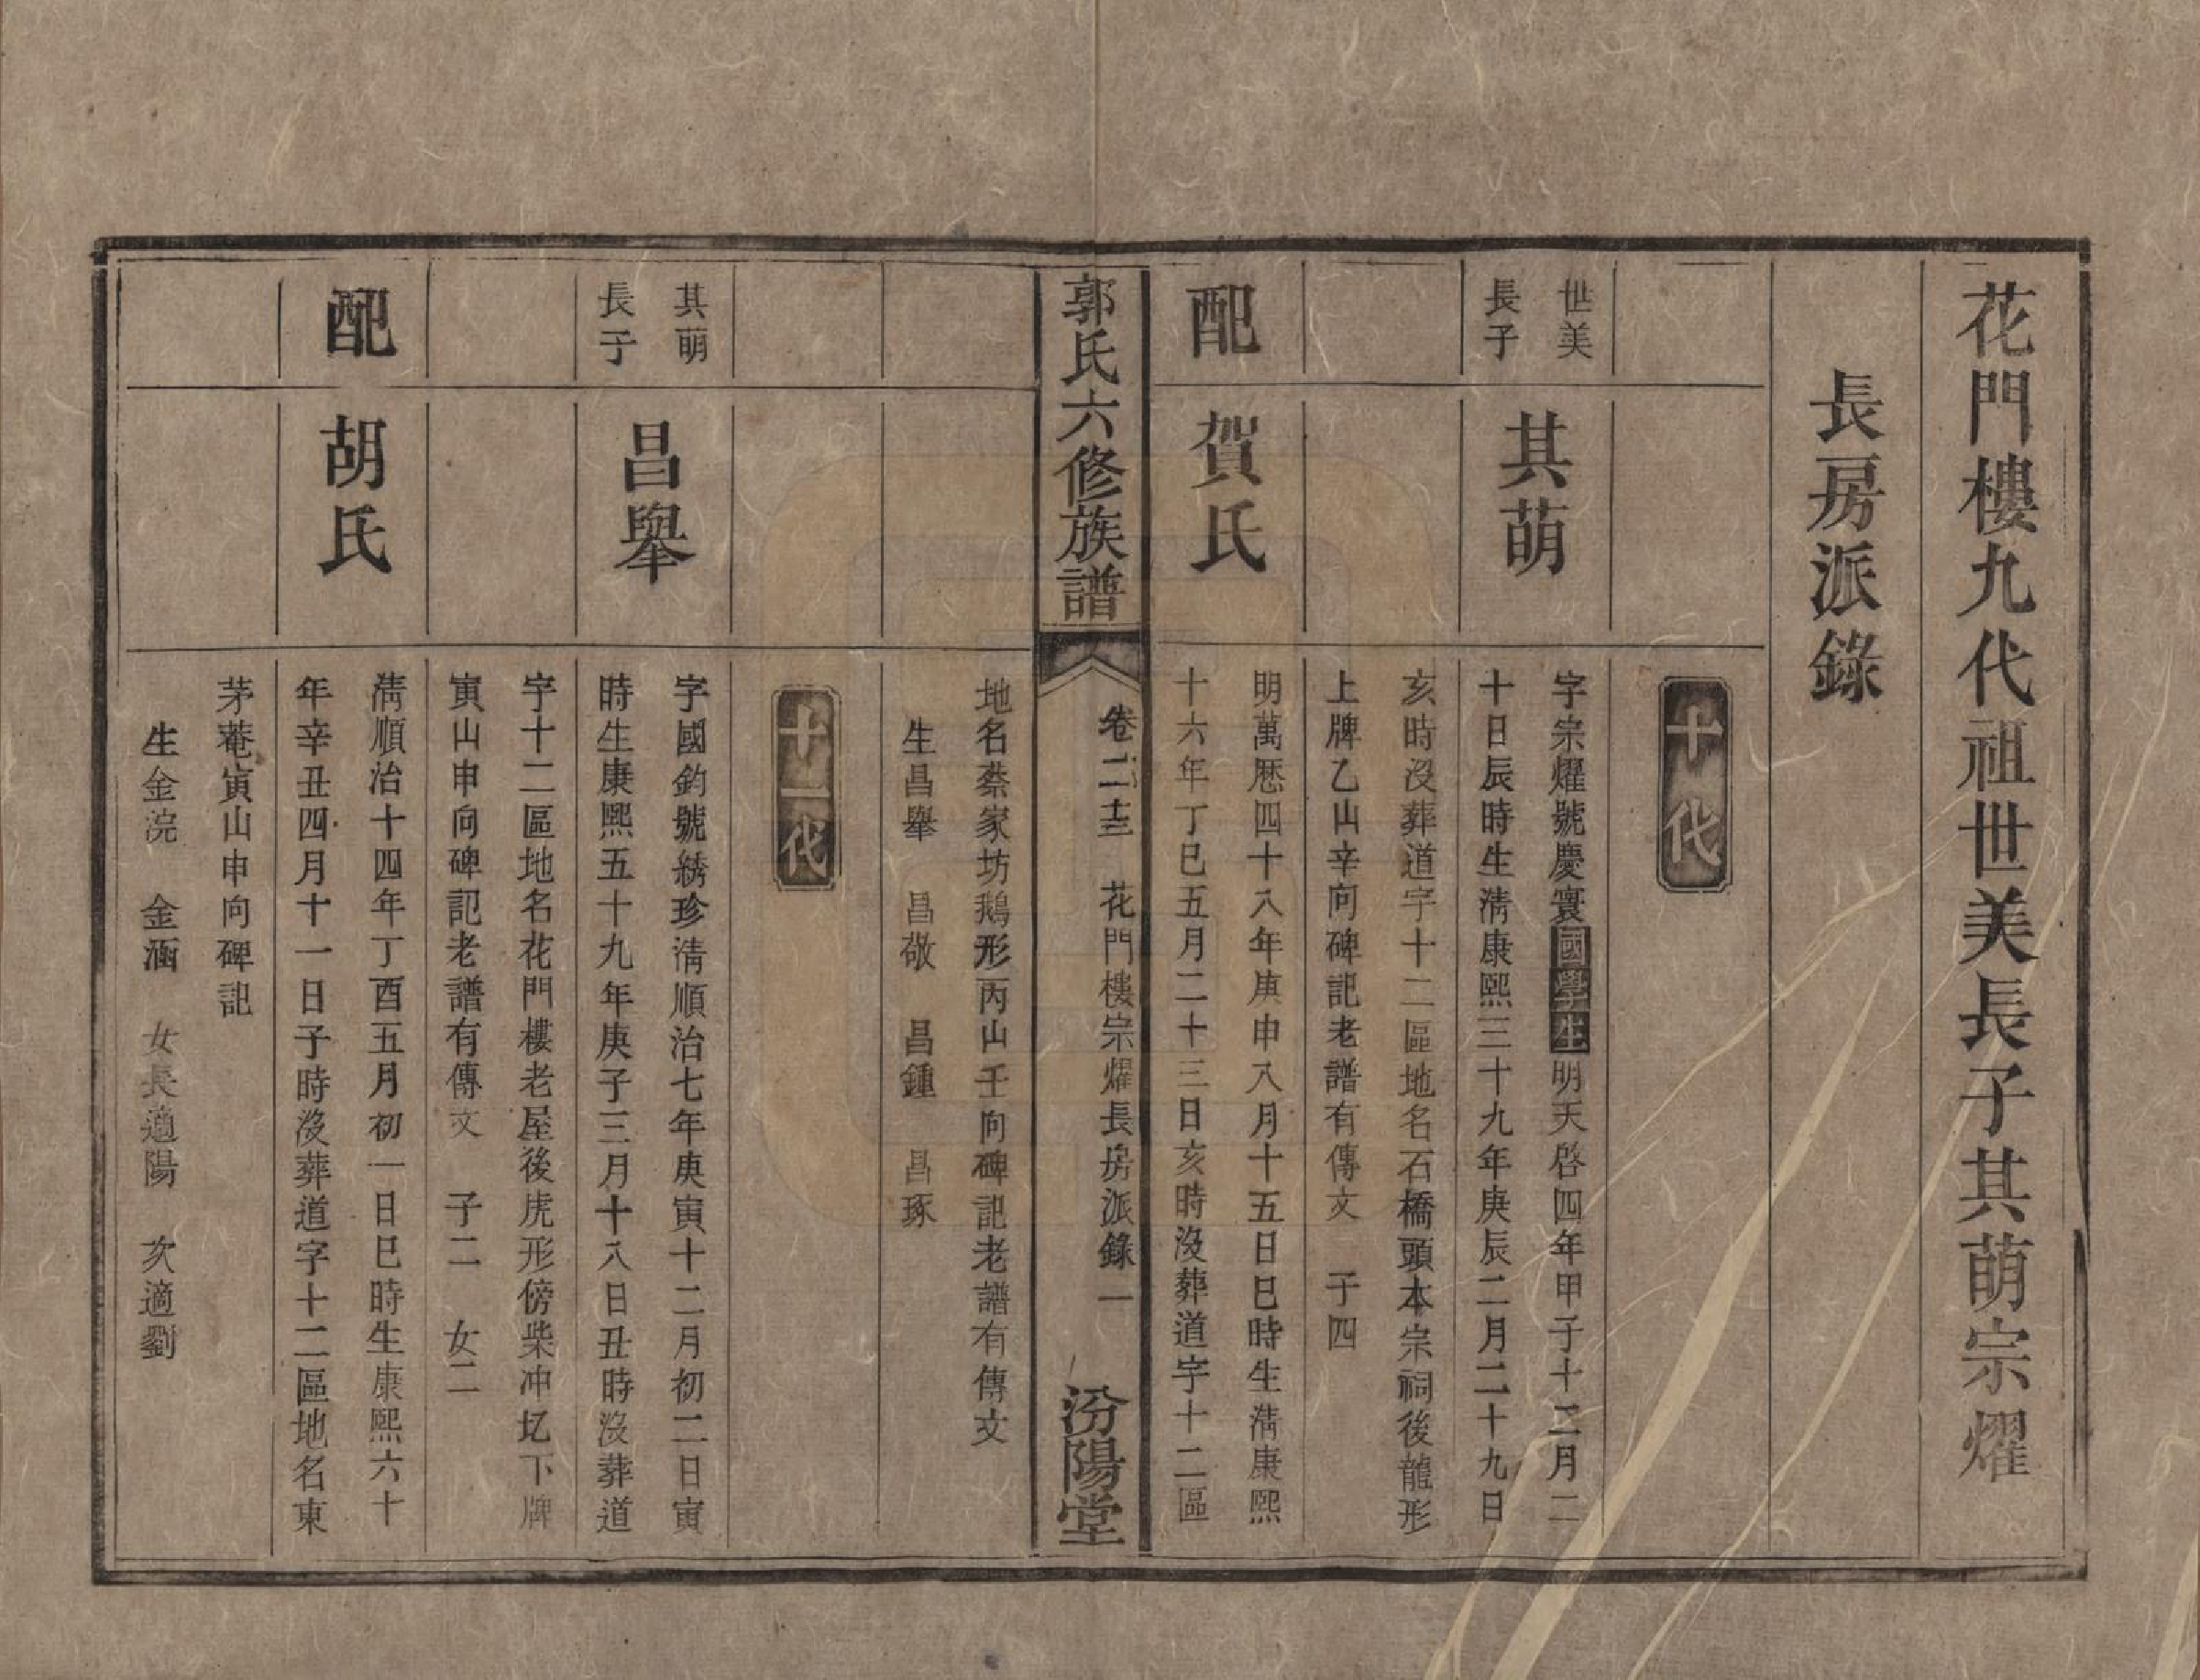 花門樓九代祖世美長子其萌宗燿
長房派錄
十代
世美
長子
其萌
字宗燿號慶寰國學生明天啓四年甲子十二月二
十日辰時生淸康熙三十九年庚辰二月二十九日
亥時沒葬道字十二區地名石橋頭本宗祠後龍形
上牌乙山辛向碑記老譜有傳文　子四
配
賀氏
明萬厯四十八年庚申八月十五日巳時生淸康熙
十六年丁巳五月二十三日亥時沒葬道字十二區
郭氏六修族譜
卷二十三　花門樓宗燿長房派錄一
汾陽堂
地名蔡家坊鵝形丙山壬向碑記老譜有傳文
生昌舉　昌敬　昌鍾　昌琢
十一代
其萌
長子
昌舉
字國鈞號綉珍淸順治七年庚寅十二月初二日寅
時生康熙五十九年庚子三月十八日丑時沒葬道
字十二區地名花門樓老屋後虎形傍柴冲圪下牌
寅山申向碑記老譜有傳文　子二　女二
配
胡氏
淸順治十四年丁酉五月初一日巳時生康熙六十
年辛丑四月十一日子時沒葬道字十二區地名東
茅菴寅山申向碑記
生金浣　金涵　女長適陽　次適劉